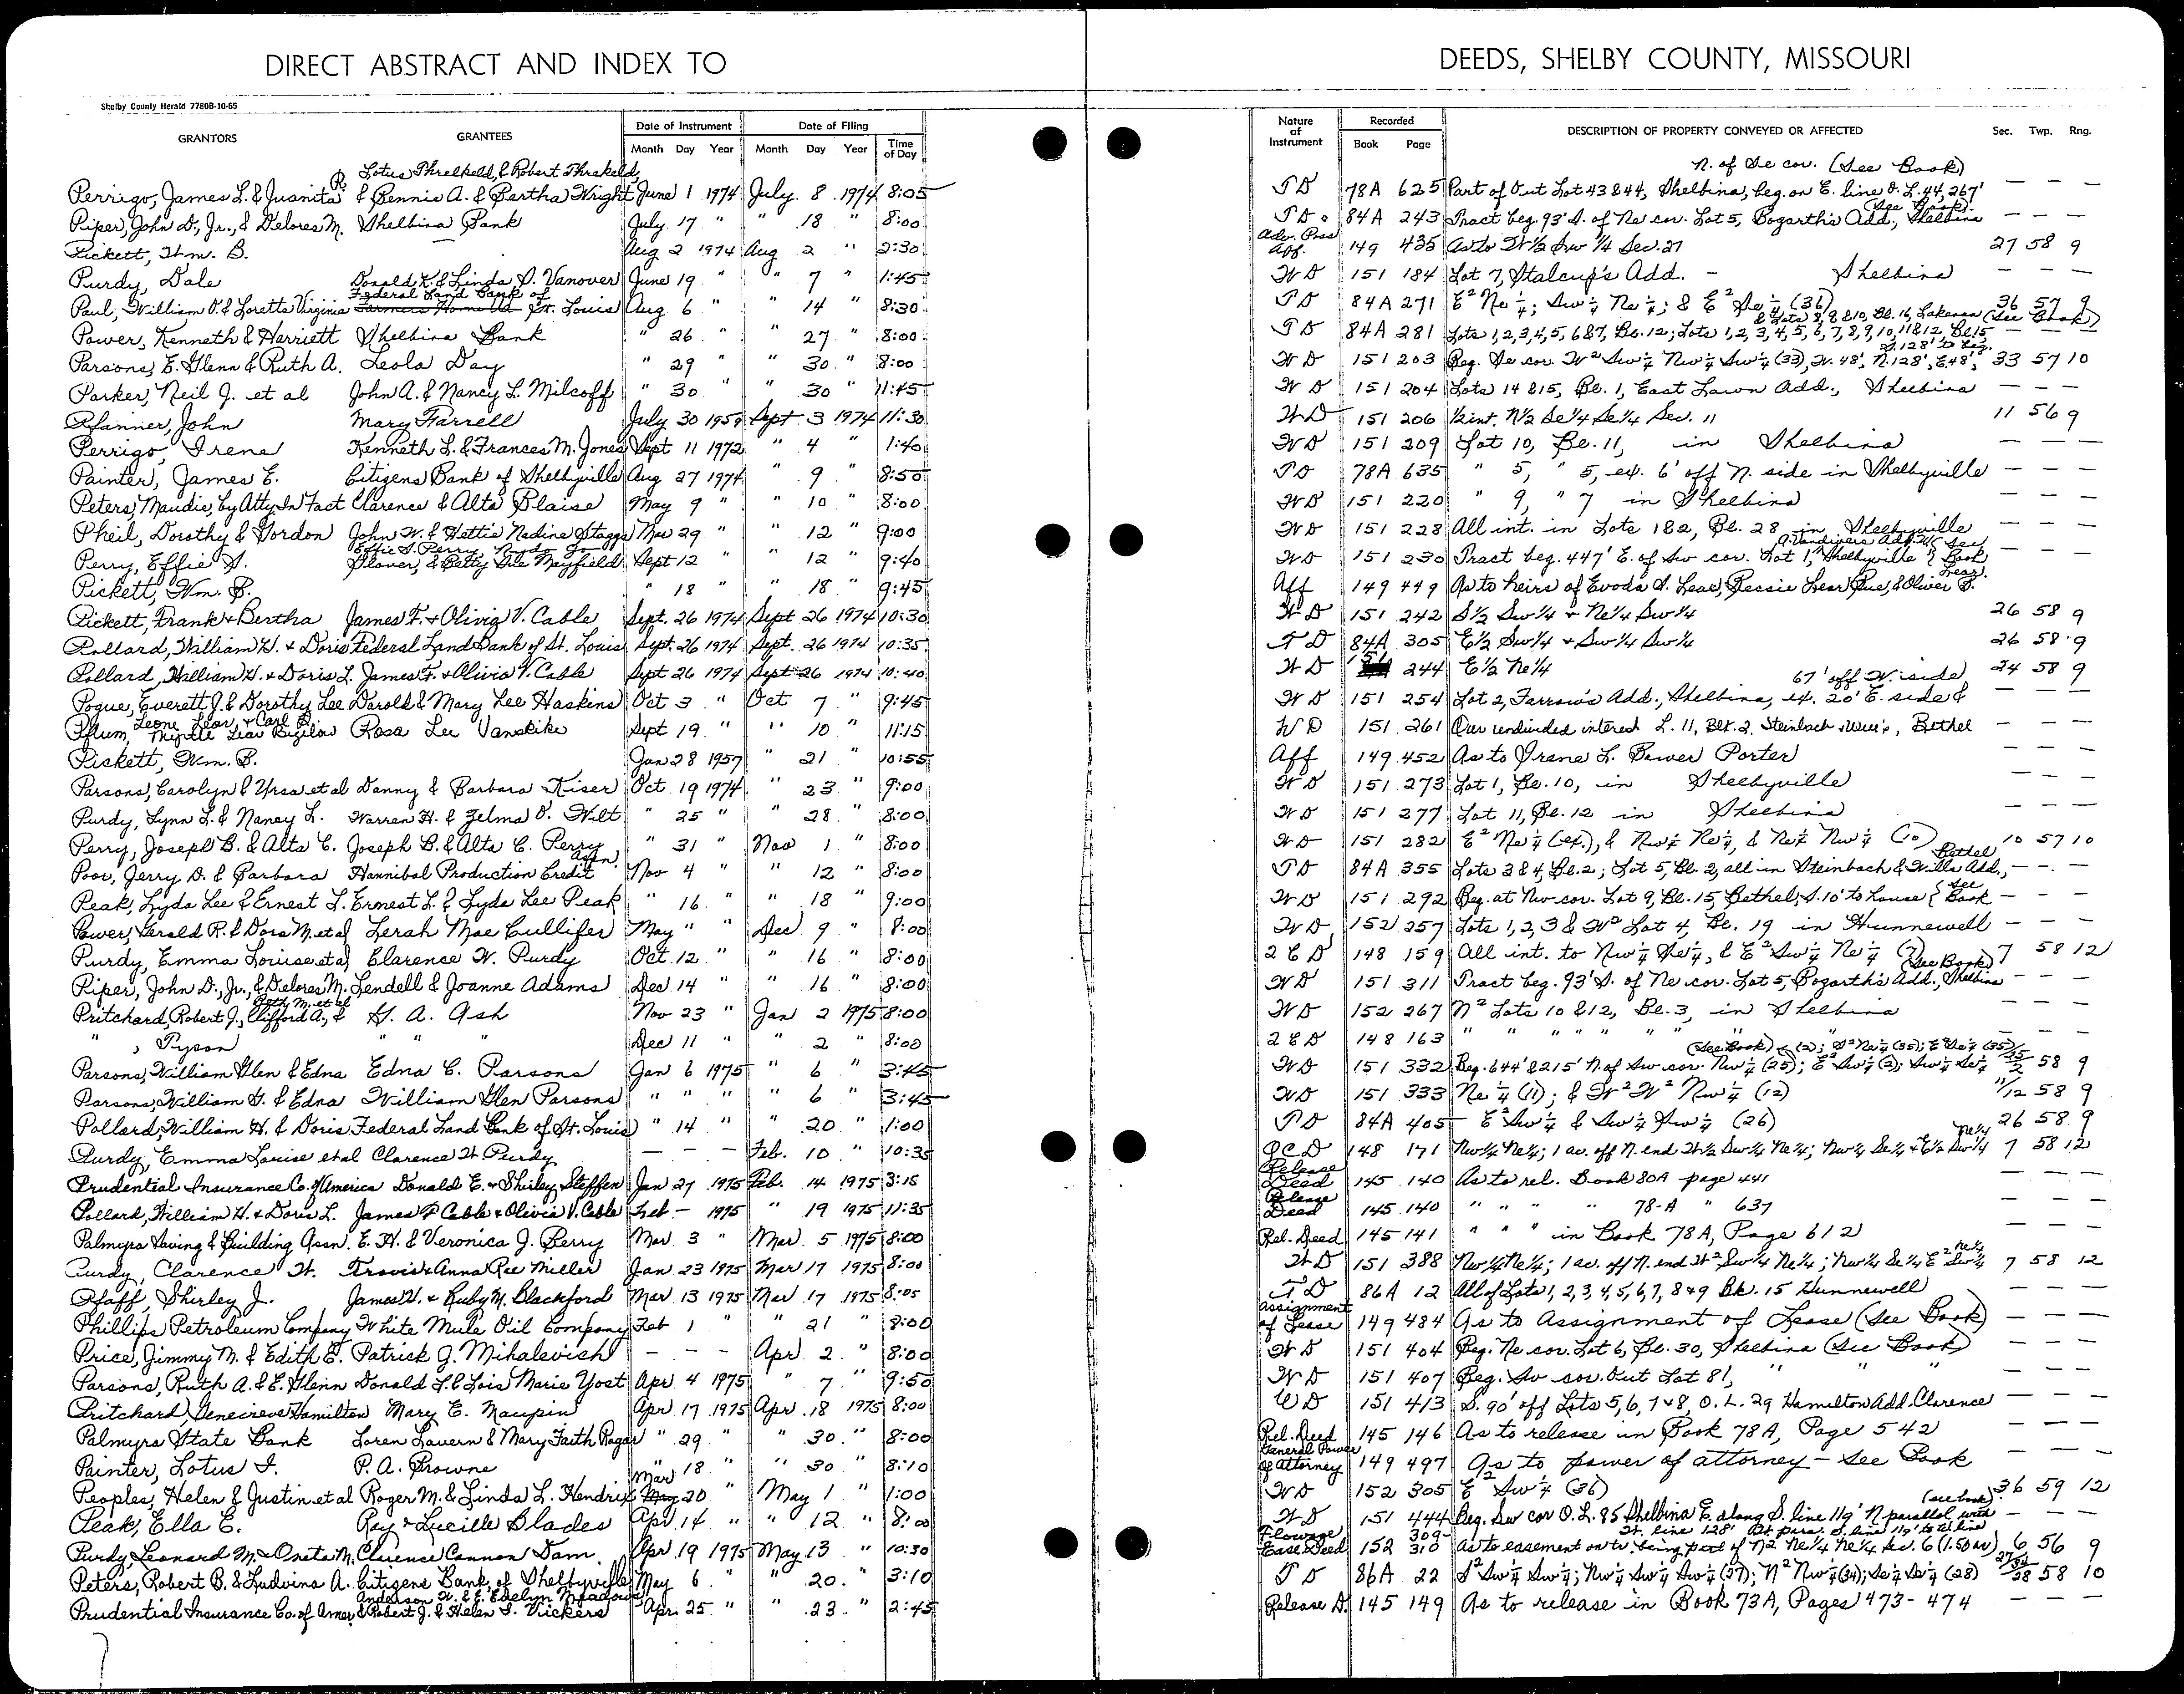 DIRECT ABSTRACT AND INDEX TO
DEEDS, SHELBY COUNTY, MISSOURI
Shelby County Herald 7780B-10-65
GRANTORS GRANTEES Date of Instrument Month Day Year Date of Filing Month Day Year Time of Day Nature of Instrument Recorded Book Page DESCRIPTION OF PROPERTY CONVEYED OR AFFECTED Sec. Twp. Rng.
Lotus Threlkeld, & Robert Threlkeld, N. of Se cor. (See Book)
Perrigo, James L. & Juanita R. & Bennie A. & Bertha Wright June 1 1974 July 8 1974 8:05 TD 78A 625 Part of Out Lot 43 & 44, Shelbina, beg. on E. line O. L. 44, 267' — — —
Piper, John D., Jr., & Delores M. Shelbina Bank July 17 " " 18 " 8:00 TD 84A 243 Tract beg. 93' S. of Ne cor. Lot 5, Bogarth's Add., Shelbina (See Book) — — —
Pickett, Wm. B. — Aug 2 1974 Aug 2 " 2:30 Adv. Poss Aff. 149 435 As to W 1/2 Sw 1/4 Sec. 27 27 58 9
Purdy, Dale Donald K. & Linda S. Vanover June 19 " " 7 " 1:45 WD 151 184 Lot 7, Stalcup's Add. - Shelbina — — —
Paul, William O. & Loretta Virginia Federal Land Bank of St. Louis Aug 6 " " 14 " 8:30 TD 84A 271 E² Ne ¼; Sw ¼ Ne ¼; & E² Se ¼ (36) 36 57 9
& Lots 8, 9 & 10, Bl. 16, Lakenan (See Book)
Power, Kenneth & Harriett Shelbina Bank " 26 " " 27 " 8:00 TD 84A 281 Lots 1, 2, 3, 4, 5, 6 & 7, Bl. 12; Lots 1, 2, 3, 4, 5, 6, 7, 8, 9, 10, 11 & 12 Bl. 15 — — —
S. 128' to beg.
Parsons, E. Glenn & Ruth A. Leola Day " 29 " " 30 " 8:00 WD 151 203 Beg. Se cor. W² Sw ¼ Nw ¼ Sw ¼ (33), W. 48', N. 128', E. 48', 33 57 10
Parker, Neil J. et al John A. & Nancy L. Milcoff " 30 " 30 " 11:45 WD 151 204 Lots 14 & 15, Bl. 1, East Lawn Add., Shelbina — — —
Pfanner, John Mary Farrell July 30 1959 Sept 3 1974 11:30 WD 151 206 1/2 int. N/2 Se 1/4 Se 1/4 Sec. 11 11 56 9
Perrigo, Irene Kenneth L. & Frances M. Jones Sept 11 1972 " 4 " 1:40 WD 151 209 Lot 10, Bl. 11, in Shelbina — — —
Painter, James E. Citizens Bank of Shelbyville Aug 27 1974 " 9 " 8:50 TD 78A 635 " 5, " 5, ex. 6' off N. side in Shelbyville — — —
Peters, Maudie, by Atty. In Fact Clarence & Alta Blaise May 9 " " 10 " 8:00 WD 151 220 " 9, " 7 in Shelbina — — —
Pheil, Dorothy & Gordon John W. & Hettie Nadine Staggs Mar 29 " " 12 " 9:00 WD 151 228 All int. in Lots 1 & 2, Bl. 28 in Shelbyville — — —
Perry, Effie S. Effie S. Perry, Glover, & Betty Sue Mayfield Sept 12 " 12 " 9:40 WD 151 230 Tract beg. 447' E. of Sw cor. Lot 1, A. Vandivers Add. Shelbyville (See Book — — —
Pickett, Wm. B. " 18 " 18 " 9:45 Aff 149 449 As to heirs of Evoda S. Lear, Bessie Lear Rue, & Oliver S. Lear.
Pickett, Frank & Bertha James F. & Olivia V. Cable Sept. 26 1974 Sept. 26 1974 10:30 WD 151 242 S½ Sw¼ + Ne¼ Sw¼ 26 58 9
Pollard, William H. & Doris Federal Land Bank of St. Louis Sept. 26 1974 Sept. 26 1974 10:35 TD 84A 305 E½ Sw¼ + Sw¼ Sw¼ 26 58 9
Pollard, William H. & Doris L. James F. & Olivia V. Cable Sept 26 1974 Sept 26 1974 10:40 WD 151 244 E½ Ne¼ 24 58 9
67' off W. side
Pogue, Everett J. & Dorothy Lee Darold & Mary Lee Haskins Oct. 3 " Oct 7 " 9:45 WD 151 254 Lot 2, Farrow's Add., Shelbina, ex. 20' E. side & — — —
Pflum, Leone Lear, & Carl B. Myrtle Lear Bigelow Rosa Lee Vanskike Sept 19 " " 10 " 11:15 WD 151 261 Our undivided interest L. 11, Blk. 2, Steinbach & , Bethel — — —
Pickett, Wm. B. Jan 28 1957 " 21 " 10:55 Aff 149 452 As to Irene L. Bower Porter — — —
Parsons, Carolyn & Ursa et al Danny & Barbara Kiser Oct. 19 1974 " 23 " 9:00 WD 151 273 Lot 1, Bl. 10, in Shelbyville — — —
Purdy, Lynn L. & Nancy L. Warren H. & Zelma O. Wilt " 25 " " 28 " 8:00 WD 151 277 Lot 11, Bl. 12 in Shelbina — — —
Perry, Joseph B. & Alta C. Joseph B. & Alta C. Perry " 31 " Nov 1 " 8:00 WD 151 282 E² Ne ¼ (ex.), & Nw ¼ Ne ¼, & Ne ¼ Nw ¼ (10) 10 57 10
Poor, Jerry D. & Barbara Hannibal Production Credit Assn. Nov 4 " " 12 " 8:00 TD 84A 355 Lots 3 & 4, Bl. 2; Lot 5, Bl. 2, all in Steinbach & Wills Add., Bethel — —
Peak, Lyda Lee & Ernest L. Ernest L. & Lyda Lee Peak " 16 " " 18 " 9:00 WD 151 292 Beg. at Nw cor. Lot 9, Bl. 15, Bethel, S. 10' to house (See Book — — —
Power, Gerald R. & Dora M. et al Lerah Mae Cullifer May " " Dec 9 " 8:00 WD 152 257 Lots 1, 2, 3 & W² Lot 4, Bl. 19 in Hunnewell — — —
Purdy, Emma Louise et al Clarence W. Purdy Oct. 12 " " 16 " 8:00 2CD 148 159 All int. to Nw ¼ Ne ¼, & E² Sw ¼ Ne ¼ (7) (See Book) 7 58 12
Piper, John D., Jr., & Delores M. Lendell & Joanne Adams Dec 14 " 16 " 8:00 WD 151 311 Tract beg. 93' S. of Ne cor. Lot 5, Bogarth's Add., Shelbina — — —
Pritchard, Robert J., Clifford A., & Beth M. et al G. A. Ash Nov 23 " Jan 2 1975 8:00 WD 152 267 N² Lots 10 & 12, Bl. 3, in Shelbina — — —
" , Tyson " " " Dec 11 " " 2 " 8:00 2CD 148 163 " " " " " " " " — — —
Parsons, William Glen & Edna Edna C. Parsons Jan 6 1975 " 6 " 3:45 WD 151 332 Beg. 644' & 215' N. of Sw cor. Nw ¼ (25); E² Sw ¼ (2); Sw ¼ Se ¼ (See Book) (2); S² Ne ¼ (35); E² Se ¼ (35) 58 9
Parsons, William G. & Edna William Glen Parsons " " " " 6 " 3:45 WD 151 333 Ne ¼ (11); & W² W² Nw ¼ (12) 11/12 58 9
Pollard, William H. & Doris Federal Land Bank of St. Louis " 14 " " 20 " 1:00 TD 84A 405 E² Sw ¼ & Sw ¼ Sw ¼ (26) 26 58 9
Purdy, Emma Louise et al Clarence W. Purdy — — — Feb. 10 " 10:35 QCD 148 171 Nw¼ Ne¼; 1 ac. off N. end W½ Sw¼ Ne¼; Nw¼ Se¼ & E½ Sw¼ Ne¼ 7 58 12
Prudential Insurance Co. of America Donald E. & Shirley Steffen Jan 27 1975 Feb. 14 1975 3:15 Release Deed 145 140 As to rel. Book 80A page 441 — — —
Pollard, William H. & Doris L. James F. Cable & Olivia V. Cable Feb — 1975 " 19 1975 11:35 Release Deed 145 140 " " " " 78-A " 637 — — —
Palmyra Saving & Building Assn. E. H. & Veronica J. Berry Mar 3 " Mar. 5 1975 8:00 Rel. Deed 145 141 " " " in Book 78A, Page 612
Purdy, Clarence W. Travis & Anna Rae Miller Jan 23 1975 Mar 17 1975 8:00 WD 151 388 Nw¼ Ne¼; 1 ac. off N. end W² Sw¼ Ne¼; Nw¼ Se¼ E² Sw¼ Ne¼ 7 58 12
Pfaff, Shirley J. James H. & Ruby M. Blackford Mar 13 1975 Mar 17 1975 8:05 TD 86A 12 All of Lots 1, 2, 3, 4, 5, 6, 7, 8 & 9 Bk. 15 Hunnewell — — —
Phillips Petroleum Company White Mule Oil Company Feb 1 " " 21 " 8:00 Assignment of Lease 149 484 As to Assignment of Lease (See Book) — — —
Price, Jimmy M. & Edith E. Patrick J. Mihalevich — — — Apr 2 " 8:00 WD 151 404 Beg. Ne cor. Lot 6, Bl. 30, Shelbina (See Book) — — —
Parsons, Ruth A. & E. Glenn Donald L. & Lois Marie Yost Apr 4 1975 " 7 " 9:50 WD 151 407 Beg. Sw cor. Out Lot 81, " " " — — —
Pritchard, Genevieve Hamilton Mary E. Maupin Apr 17 1975 Apr. 18 1975 8:00 WD 151 413 S. 90' off Lots 5, 6, 7 & 8, O. L. 29 Hamilton Add. Clarence — — —
Palmyra State Bank Loren Lavern & Mary Faith Ragar " 29 " " 30 " 8:00 Rel. Deed 145 146 As to release in Book 78A, Page 542 — — —
Painter, Lotus I. P. A. Browne " 18 " " 30 " 8:10 General Power of Attorney 149 497 As to power of attorney - See Book — — —
Peoples, Helen & Justin et al Roger M. & Linda L. Hendrix Mar 20 " May 1 " 1:00 WD 152 305 E² Sw ¼ (36) 36 59 12
(see book)
Peak, Ella E. Ray & Lucille Blades Apr 14 " " 12 " 8:00 WD 151 444 Beg. Sw cor O. L. 85 Shelbina E. along S. line 119' N. parallel with — — —
W. line 128' W. para. S. line 119' to W. line
Purdy, Leonard M. & Oneta M. Clarence Cannon Dam Apr 19 1975 May 13 " 10:30 Flowage Ease. Deed 152 309-310 As to easement on tr. being part of N² Ne¼ Ne¼ Sec. 6 (1.50 ac) 6 56 9
Peters, Robert B. & Ludvina A. Citizens Bank of Shelbyville May 6 " " 20 " 3:10 TD 86A 22 S² Sw ¼ Sw ¼; Nw ¼ Sw ¼ Sw ¼ (27); N² Nw ¼ (34); Se ¼ Se ¼ (28) 27/34/28 58 10
Anderson W. & E. Edelyn Meadows
Prudential Insurance Co. of Amer. & Robert J. & Helen I. Vickers Apr. 25 " " 23 " 2:45 Release D. 145 149 As to release in Book 73A, Pages 473-474 — — —